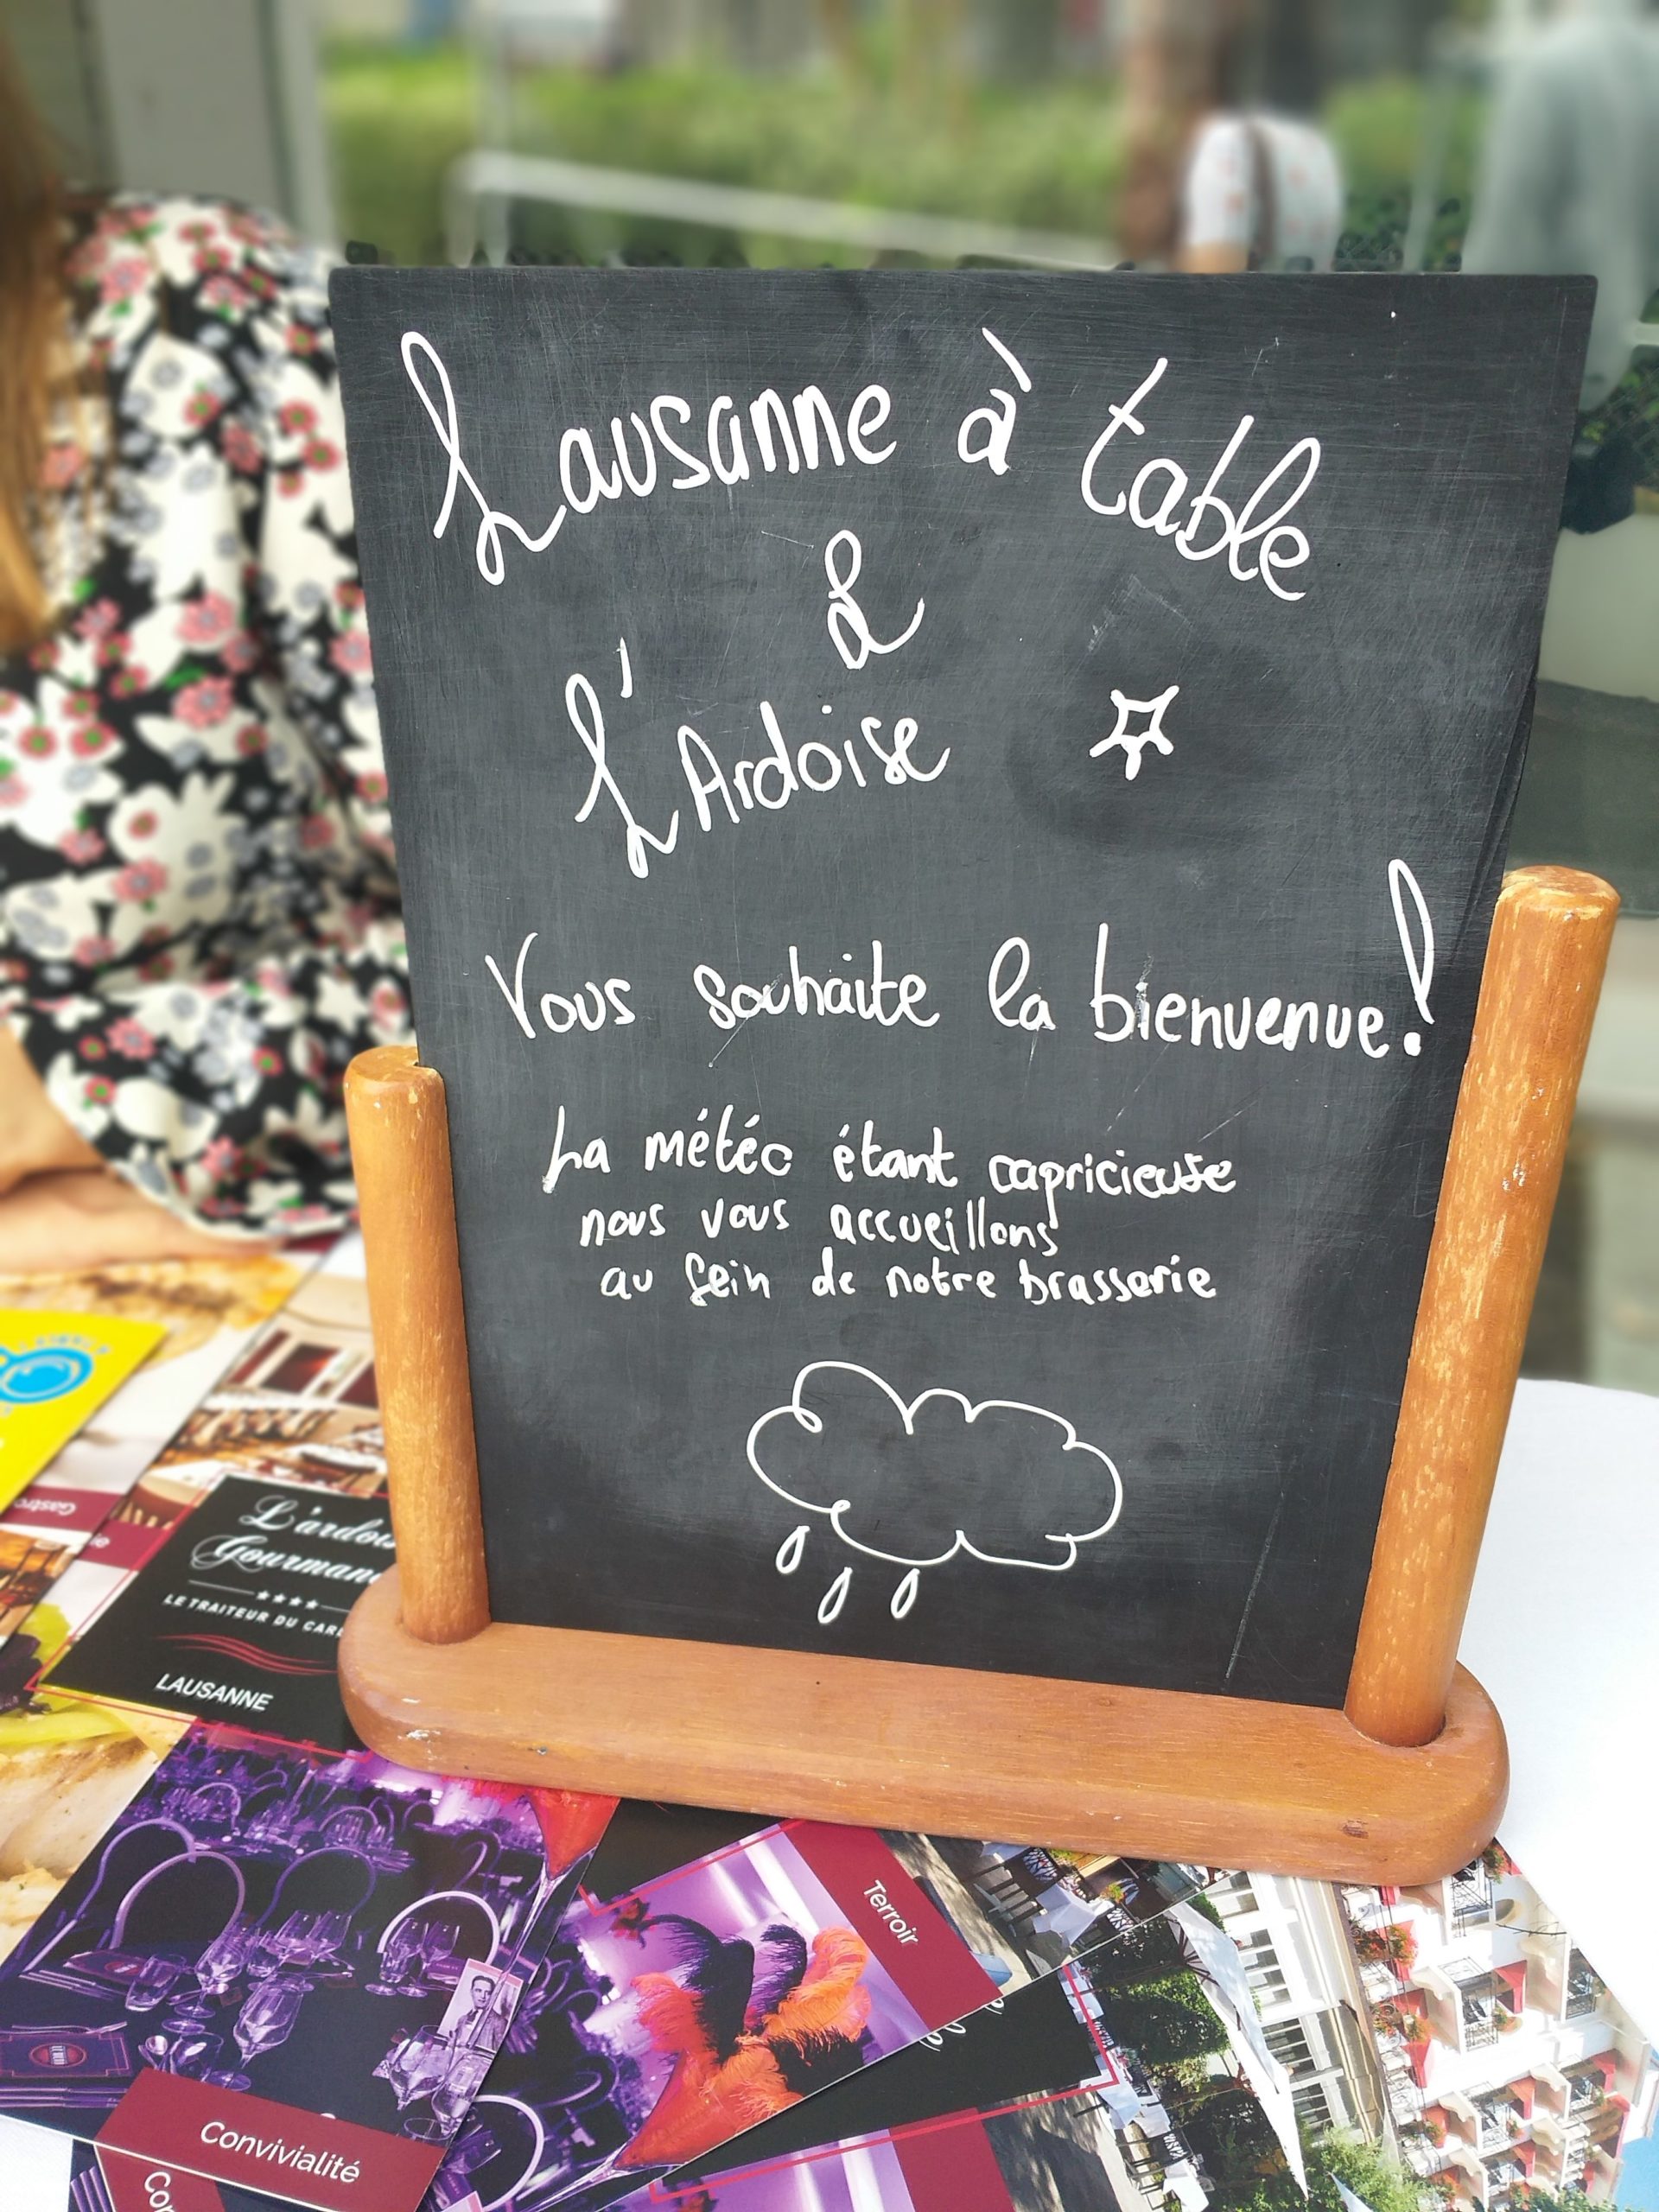 Lausanne à table
&
L'Ardoise
Vous souhaite la bienvenue!
La météo étant capricieuse
nous vous accueillons
au sein de notre brasserie
LE TRAITEUR DU
LAUSANNE
Terroir
Convivialité